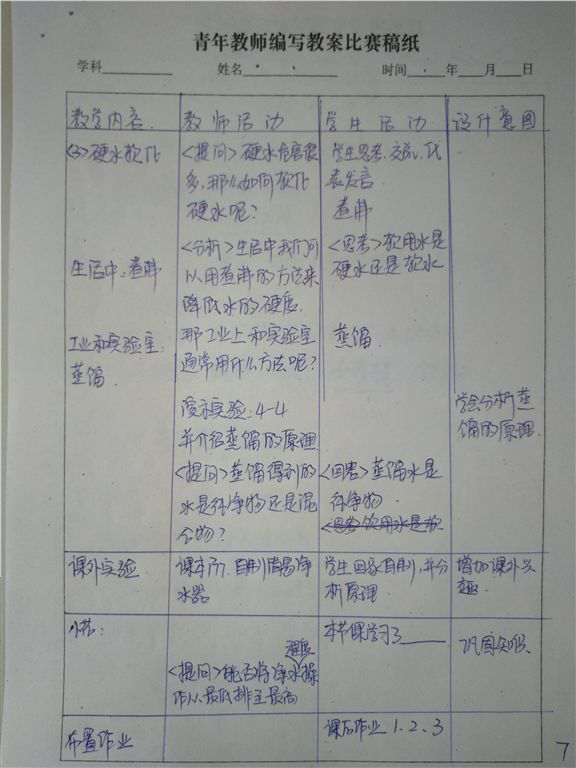 青年教师编写教案比赛稿纸
学科 姓名 时间 年 月 日
教学内容 教师活动 学生活动 设计意图
<3>硬水软化
<提问>硬水危害很
多,那么如何软化
硬水呢?
学生思考、交流、代
表发言
煮沸
生活中:煮沸
<分析>生活中我们可
以用煮沸的方法来
降低水的硬度.
<思考>软用水是
硬水还是软水
工业和实验室:
蒸馏
那工业上和实验室
通常用什么方法呢?
蒸馏
演示实验:4-4
并介绍蒸馏的原理
学会分析蒸
馏的原理
<提问>蒸馏得到的
水是纯净物还是混
合物?
<回答>蒸馏水是
纯净物
<思考>饮用水是软
课外实验
课本 自制简易净
水器
学生回家自制,并分
析原理
增加课外兴
趣
小结:
<提问>能否将净水操
程度
作从最低排至最高
本节课学习了
巩固知识
布置作业
课后作业 1、2、3
7